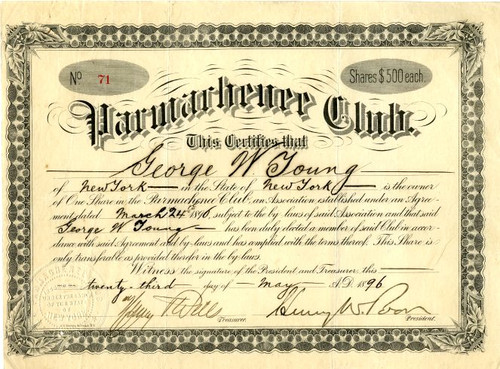 No 71
Shares $500 each.
Parmachenee Club.
This Certifies that
George W. Young
of New York in the State of New York is the owner
of One Share in the Parmachenee Club, an Association established under an Agree-
ment dated March 24th 1890, subject to the by-laws of said Association and that said
George W. Young has been duly elected a member of said Club in accor-
dance with said Agreement and by-laws and has complied with the terms thereof. This Share is
only transferable as provided therein or in the by-laws.
Witness the signature of the President and Treasurer, this
twenty-third day of May A.D. 1896
Treasurer.
Henry W. Poor
President.